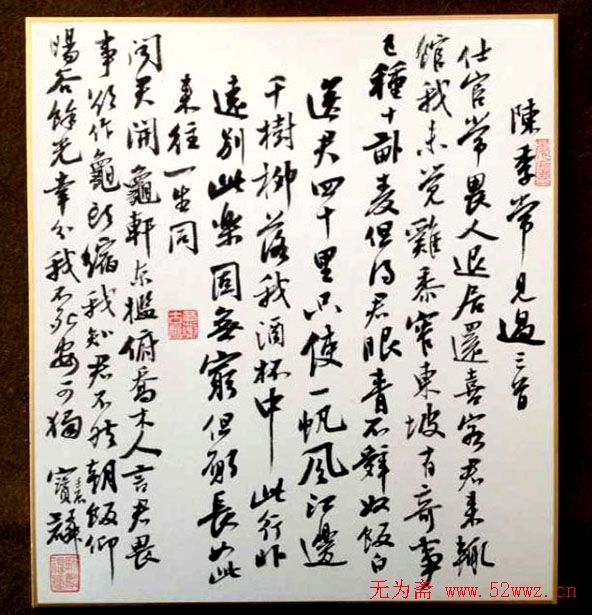 陳季常見過三首
仕宦常畏人退居還喜客君来輒
館我未覺雞黍窄東坡有奇事
已種十畝麦但得君眼青不辞奴飯白
送君四十里只使一帆風江邊
千樹柳落我酒杯中此行非
遠别此樂固無窮但願長如此
来往一生同
聞君開龜軒东檻俯喬木人言君畏
事欲作龜头縮我知君不然朝飯仰
暘谷餘光幸分我不死安可獨 寶麟
无为斋 www.52wwz.cn